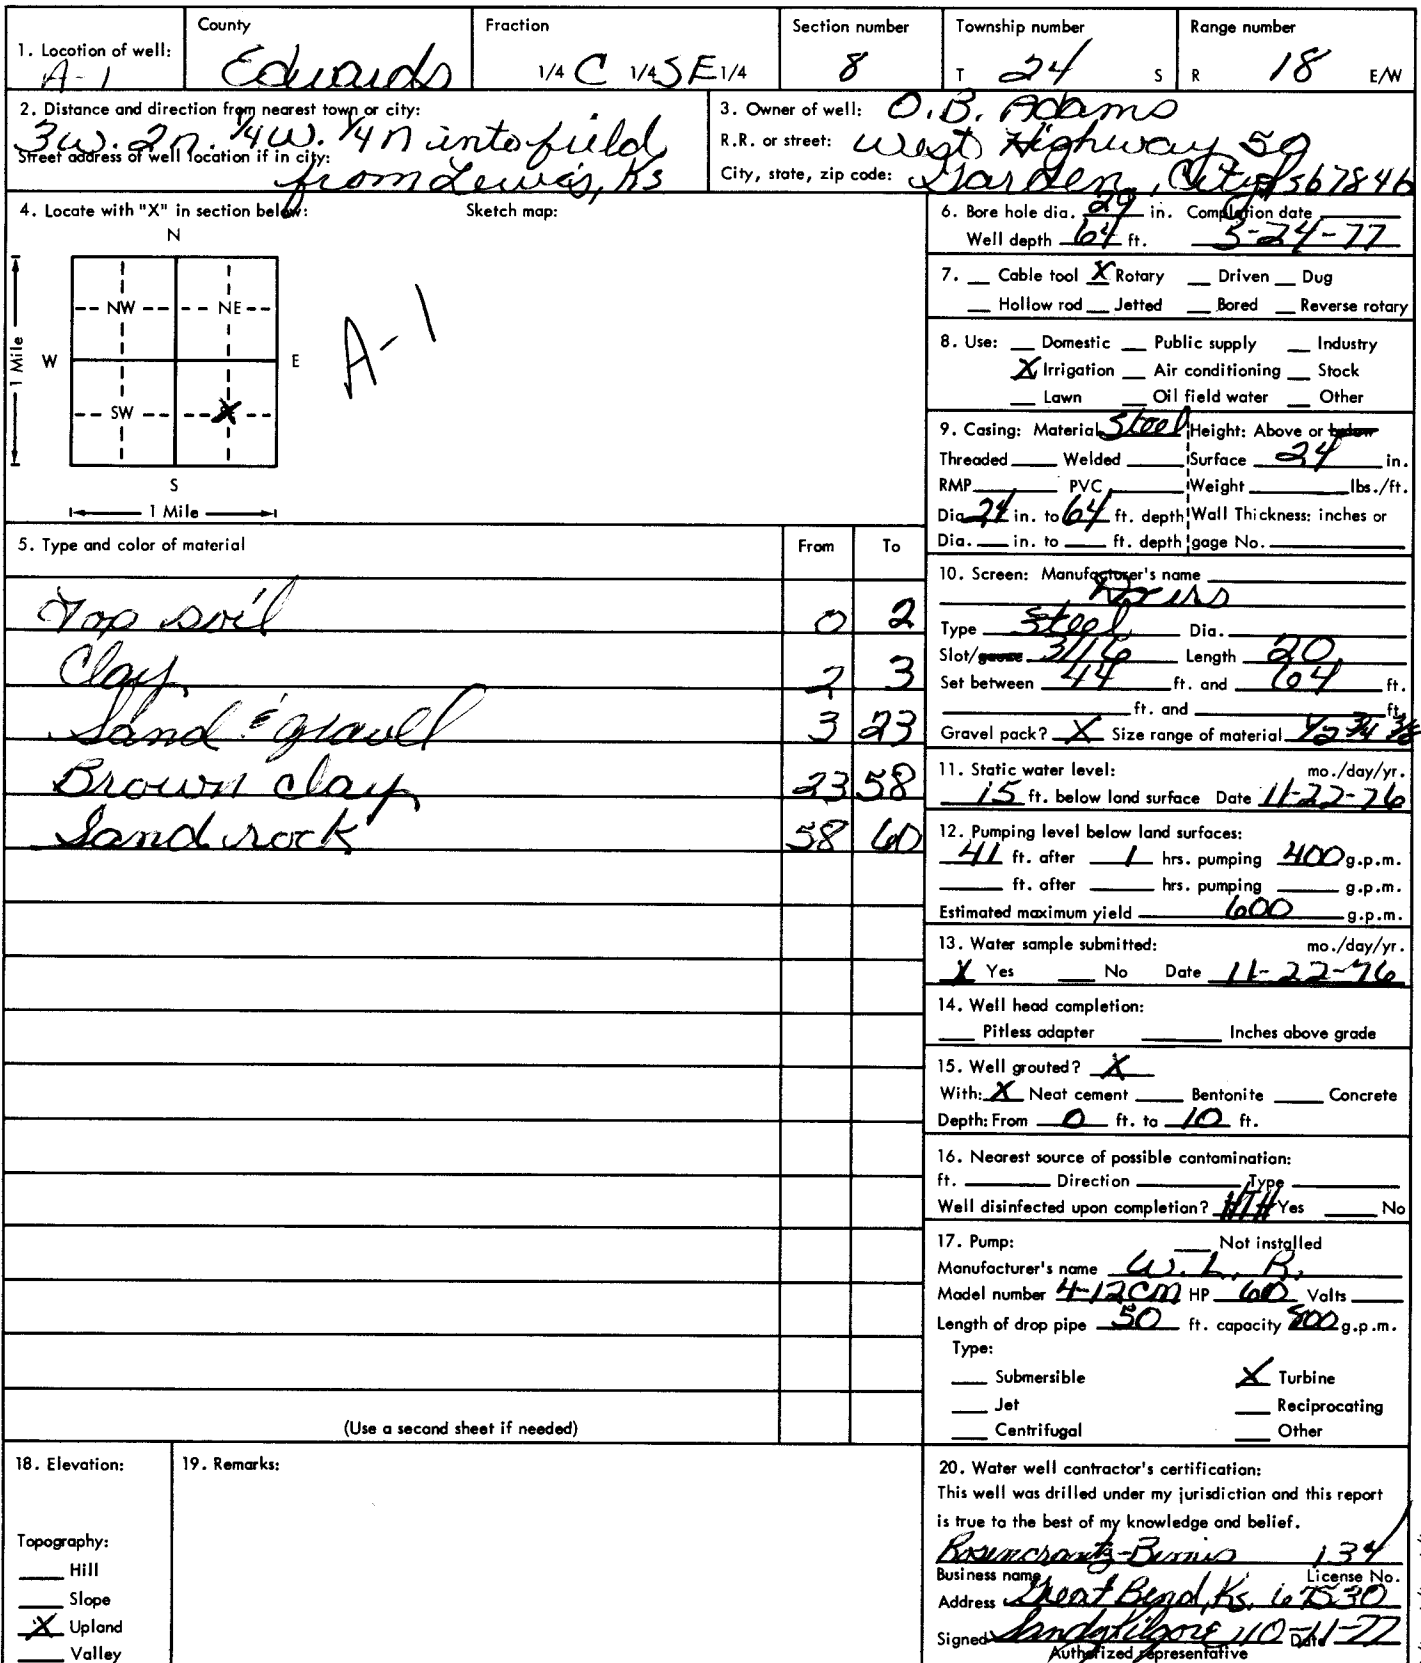 County Fraction Section number Township number Range number
1. Location of well: A-1 Edwards 1/4 C 1/4 SE 1/4 8 T 24 S R 18 E/W
2. Distance and direction from nearest town or city:
3w. 2n. 1/4w. 1/4n into field
Street address of well location if in city:
from Lewis, Ks
3. Owner of well: O.B. Adams
R.R. or street: West Highway 50
City, state, zip code: Garden City, Ks 67846
4. Locate with "X" in section below: Sketch map:
N
NW NE
W E
1 Mile
SW X
S
1 Mile
A-1
5. Type and color of material From To
Top soil 0 2
Clay 2 3
Sand & gravell 3 23
Brown clay 23 58
Sand rock 58 60
(Use a second sheet if needed)
6. Bore hole dia. in. Completion date
Well depth 64 ft. 3-24-77
7. Cable tool X Rotary Driven Dug
Hollow rod Jetted Bored Reverse rotary
8. Use: Domestic Public supply Industry
X Irrigation Air conditioning Stock
Lawn Oil field water Other
9. Casing: Material Steel Height: Above or below
Threaded Welded Surface 24 in.
RMP PVC Weight lbs./ft.
Dia. in. to 64 ft. depth Wall Thickness: inches or
Dia. in. to ft. depth gage No.
10. Screen: Manufacturer's name
Type Steel Dia.
Slot/gauze 3/16 Length 20
Set between 44 ft. and 64 ft.
ft. and ft.
Gravel pack? X Size range of material 1/2 3/4 3/8
11. Static water level: mo./day/yr.
15 ft. below land surface Date 11-22-76
12. Pumping level below land surfaces:
41 ft. after 1 hrs. pumping 400 g.p.m.
ft. after hrs. pumping g.p.m.
Estimated maximum yield 600 g.p.m.
13. Water sample submitted: mo./day/yr.
X Yes No Date 11-22-76
14. Well head completion:
Pitless adapter Inches above grade
15. Well grouted? X
With: X Neat cement Bentonite Concrete
Depth: From 0 ft. to 10 ft.
16. Nearest source of possible contamination:
ft. Direction Type
Well disinfected upon completion? HTH Yes No
17. Pump: Not installed
Manufacturer's name W.L.R.
Model number 4-12CM HP 60 Volts
Length of drop pipe 50 ft. capacity 800 g.p.m.
Type:
Submersible X Turbine
Jet Reciprocating
Centrifugal Other
18. Elevation:
Topography:
Hill
Slope
X Upland
Valley
19. Remarks:
20. Water well contractor's certification:
This well was drilled under my jurisdiction and this report
is true to the best of my knowledge and belief.
Rosencrantz-Bemis 134
Business name License No.
Address Great Bend, Ks. 67530
Signed Sandy Kilgore Date 10-11-77
Authorized representative